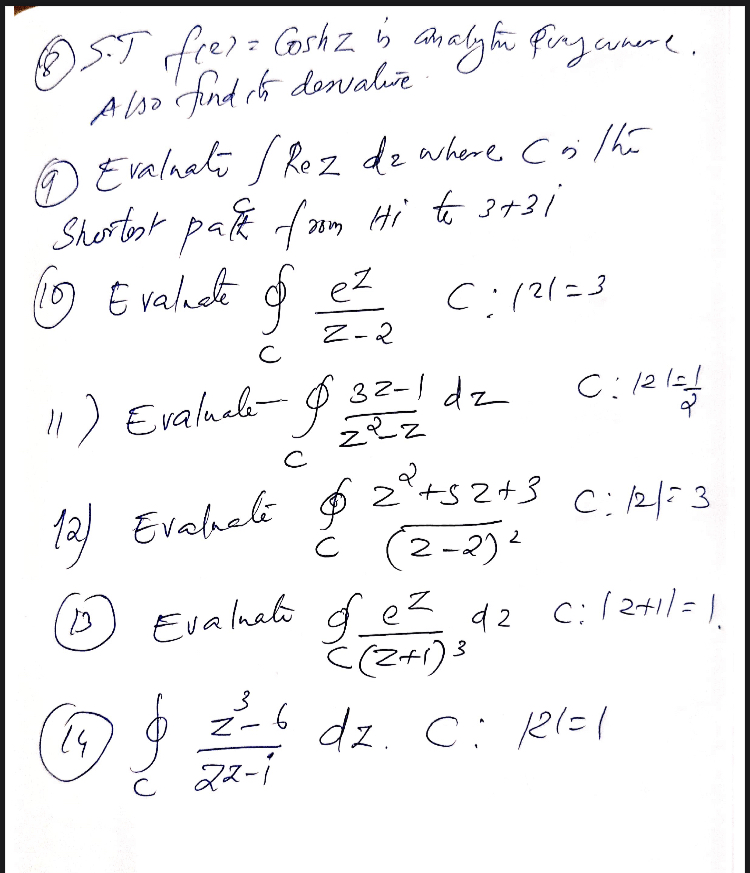 ⑧ S.T f(z) = Coshz is analytic everywhere.
Also find its derivative.
⑨ Evaluate ∫ Re z dz where C is the
C
Shortest path from 1+i to 3+3i
⑩ Evaluate ∮ e^z / z-2 C: |z|=3
C
11) Evaluate ∮ 3z-1 / z²-z dz C: |z|=1/2
C
12) Evaluate ∮ z²+5z+3 / (z-2)² C: |z|=3
C
⑬ Evaluate ∮ e^z / (z+1)³ dz C: |z+1|=1.
C
⑭ ∮ z³-6 / 2z-i dz. C: |z|=1
C